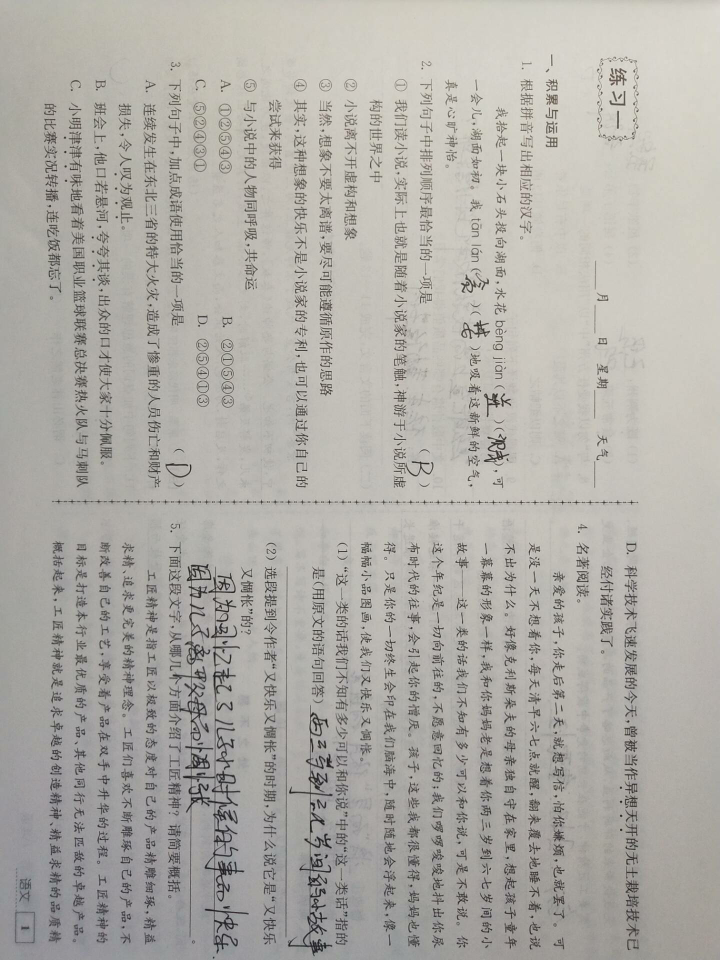 练习一
月 日 星期 天气
一、积累与运用
1. 根据拼音写出相应的汉字。
我拾起一块小石头投向湖面,水花 bèng jiàn ( )(溅),可
一会儿,湖面如初。我 tān lán (贪)(婪)地吸着这新鲜的空气,
真是心旷神怡。
2. 下列句子中排列顺序最恰当的一项是 (B)
① 我们读小说,实际上也就是随着小说家的笔触,神游于小说所虚
构的世界之中
② 小说离不开虚构和想象
③ 当然,想象不要太离谱,要尽可能遵循原作的思路
④ 其实,这种想象的快乐不是小说家的专利,也可以通过你自己的
尝试来获得
⑤ 与小说中的人物同呼吸,共命运
A. ①②⑤④③ B. ②①⑤④③
C. ⑤②④③① D. ②⑤④①③
3. 下列句子中,加点成语使用恰当的一项是 (D)
A. 连续发生在东北三省的特大火灾,造成了惨重的人员伤亡和财产
损失,令人叹为观止。
B. 班会上,他口若悬河,夸夸其谈,出众的口才使大家十分佩服。
C. 小明津津有味地看着美国职业篮球联赛总决赛热火队与马刺队
的比赛实况转播,连吃饭都忘了。
D. 科学技术飞速发展的今天,曾被当作异想天开的无土栽培技术已
经付诸实践了。
4. 名著阅读。
亲爱的孩子,你走后第二天,就想写信,怕你嫌烦,也就罢了。可
是没一天不想着你,每天清早六七点就醒,翻来覆去地睡不着,也说
不出为什么。好像克利斯朵夫的母亲独自守在家里,想起孩子童年
一幕幕的形象一样,我和你妈妈老是想着你两三岁到六七岁间的小
故事——这一类的话我们不知有多少可以和你说,可是不敢说。你
这个年纪是一切向前往的,不愿意回忆的;我们啰啰唆唆地抖出你尿
布时代的往事,会引起你的憎厌。孩子,这些我都很懂得,妈妈也懂
得。只是你的一切终生会印在我们脑海中,随时随地会浮起来,像一
幅幅小品图画,使我们又快乐又惆怅。
(1)“这一类的话我们不知有多少可以和你说”中的“这一类话”指的
是(用原文的语句回答) 两三岁到六七岁间的小故事
(2) 选段提到令作者“又快乐又惆怅”的时期,为什么说它是“又快乐
又惆怅”的?
因为回忆起了儿子小时候有的事而快乐、
因为儿子离开父母而惆怅 。
5. 下面这段文字,从哪几个方面介绍了工匠精神?请简要概括。
工匠精神是指工匠以极致的态度对自己的产品精雕细琢,精益
求精、追求更完美的精神理念。工匠们喜欢不断雕琢自己的产品,不
断改善自己的工艺,享受着产品在双手中升华的过程。工匠精神的
目标是打造本行业最优质的产品、其他同行无法匹敌的卓越产品。
概括起来,工匠精神就是追求卓越的创造精神、精益求精的品质精
语文 1